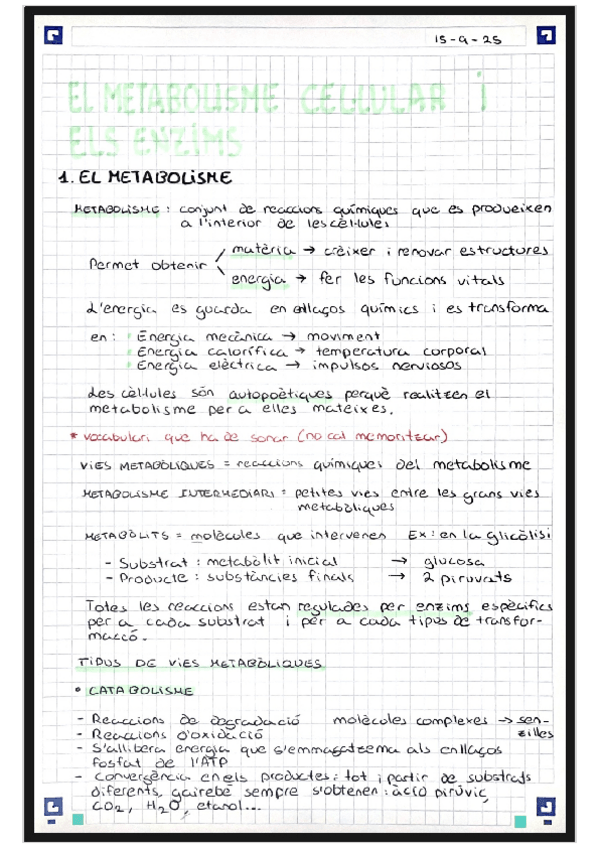 15-9-25
EL METABOLISME CEL·LULAR i
ELS ENZIMS
1. EL METABOLISME
METABOLISME : conjunt de reaccions químiques que es produeixen
a l'interior de les cèl·lules
Permet obtenir
matèria → créixer i renovar estructures
energia → fer les funcions vitals
L'energia es guarda en enllaços químics i es transforma
en : Energia mecànica → moviment
Energia calorífica → temperatura corporal
Energia elèctrica → impulsos nerviosos
Les cèl·lules són autopoètiques perquè realitzen el
metabolisme per a elles mateixes.
* vocabulari que ha de sonar (no cal memoritzar)
VIES METABÒLIQUES = reaccions químiques del metabolisme
METABOLISME INTERMEDIARI = petites vies entre les grans vies
metabòliques
METABÒLITS = molècules que intervenen Ex: en la glicòlisi
- Substrat : metabòlit inicial → glucosa
- Producte : substàncies finals → 2 piruvats
Totes les reaccions estan regulades per enzims específics
per a cada substrat i per a cada tipus de transfor-
mació.
TIPUS DE VIES METABÒLIQUES
• CATABOLISME
- Reaccions de degradació molècules complexes → sen-
zilles
- Reaccions d'oxidació
- S'allibera energia que s'emmagatzema als enllaços
fosfat de l'ATP
- Convergència en els productes: tot i partir de substrats
diferents, gairebé sempre s'obtenen : àcid pirúvic,
CO₂, H₂O, etanol...